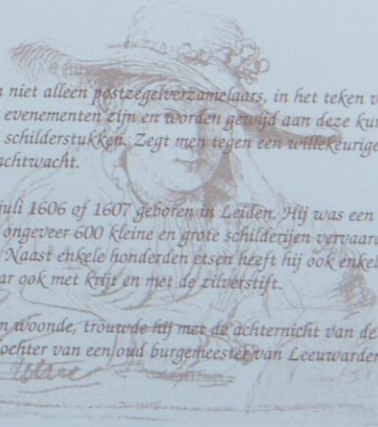 niet alleen postzegelverzamelaars, in het teken v
evenementen zijn en worden gewijd aan deze kun
schilderstukken. Zegt men tegen een willekeurige
achtwacht.
juli 1606 of 1607 geboren in Leiden. Hij was een
ongeveer 600 kleine en grote schilderijen vervaard
Naast enkele honderden etsen heeft hij ook enkel
ar ook met krijt en met de zilverstift.
n woonde, trouwde hij met de achternicht van de
ochter van een oud burgemeester van Leeuwarden